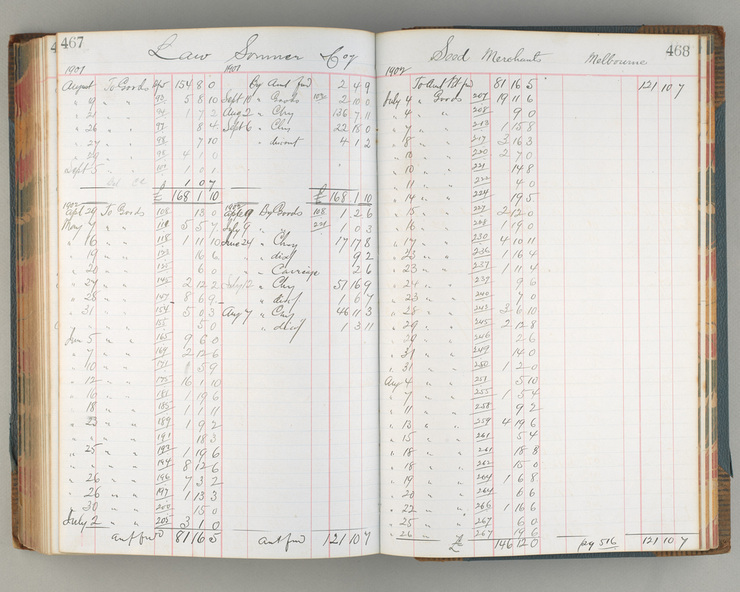 467
Law Somner Coy
1901 1901
August To Goods 154 8 0 By Amt fwd 2 4 9
" 9 " " 5 8 10 Sept 18 " Goods 2 10 0
" 21 " " 1 7 2 Aug 2 " Chq 136 7 11
" 26 " " 98 8 4 Sept 6 " Chq 22 18 0
" 27 " " 98 7 10 " discnt 4 1 2
" 29 " " 4 1 0
Sept 5 " " 1 0 1
1 0 7
£ 168 1 10 £ 168 1 10
1902 1902
Apl 29 To Goods 108 13 0 Aple 9 By Goods 108 1 2 6
May 7 " " 5 5 7 July 9 " " 1 0 3
" 16 " " 118 1 11 10 June 24 " Chq 17 17 8
" 19 " " 16 6 " disct 9 2
" 20 " " 6 0 " Carriage 2 6
" 27 " " 2 12 2 July 12 " Chq 51 16 9
" 28 " " 8 6 9 " disct 1 6 7
" 31 " " 154 5 0 3 Aug 7 " Chq 46 11 3
" " " 5 0 " disct 1 3 11
Jun 5 " " 165 9 6 0
" 7 " " 169 2 12 6
" 10 " " 171 5 9
" 12 " " 16 1 10
" 16 " " 181 1 19 6
" 18 " " 185 1 1 11
" 23 " " 189 1 9 2
" " " 191 18 3
" 25 " " 193 1 19 6
" " " 194 8 12 6
" 26 " " 196 7 3 2
" 26 " " 197 1 13 3
" 30 " " 200 15 0
July 2 " " 202 3 1 0
amt fwd 81 16 5 amt fwd 121 10 7
468
Seed Merchants Melbourne
1902
To Amt bt fd 81 16 5 121 10 7
July 4 " Goods 207 19 11 6
" 4 " " 208 9 0
" 7 " " 213 1 15 8
" 8 " " 217 3 16 3
" 10 " " 220 2 7 0
" 10 " " 221 14 8
" 11 " " 222 4 0
" 14 " " 224 19 5
" 15 " " 227 2 12 0
" 16 " " 228 1 19 0
" 17 " " 230 4 10 11
" 23 " " 236 1 16 4
" 23 " " 237 1 11 4
" 24 " " 239 9 6
" 23 " " 240 7 0
" 28 " " 243 3 6 10
" 29 " " 245 2 12 8
" 29 " " 246 2 6
" 31 " " 249 14 0
" 31 " " 250 1 2 0
Aug 4 " " 251 5 10
" 7 " " 255 1 5 4
" 11 " " 258 9 2
" 13 " " 259 4 19 6
" 15 " " 261 5 4
" 18 " " 261 18 8
" 18 " " 262 15 0
" 19 " " 264 1 6 8
" 20 " " 264 6 6
" 22 " " 266 1 16 6
" 25 " " 267 6 0
" 26 " " 267 19 6
£ 146 12 0 pg 516 121 10 7